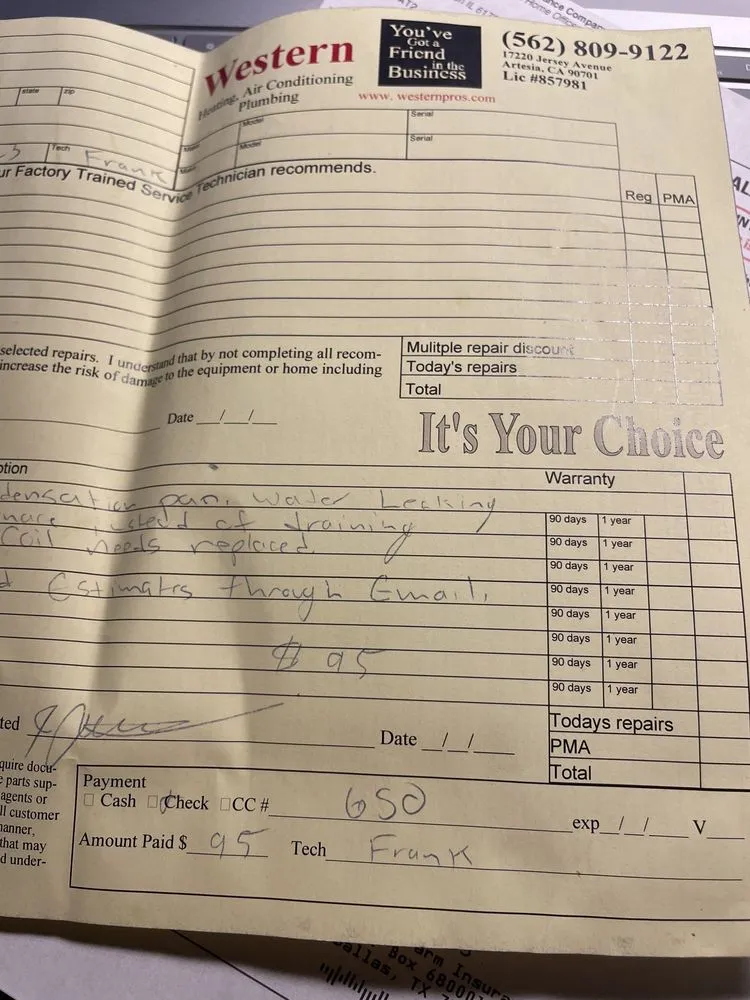 Western
Heating, Air Conditioning
Plumbing
You've
Got a
Friend
in the
Business
www. westernpros.com
(562) 809-9122
17220 Jersey Avenue
Artesia, CA 90701
Lic #857981
state zip
Model Serial
Model Serial
Tech Frank
ur Factory Trained Service Technician recommends.
Reg PMA
selected repairs. I understand that by not completing all recom-
increase the risk of damage to the equipment or home including
Mulitple repair discount
Today's repairs
Total
Date __/__/__
It's Your Choice
ption
Warranty
densation pan, water Leaking
of draining
Coil needs replaced.
d Estimates through Email,
$ 95
90 days 1 year
90 days 1 year
90 days 1 year
90 days 1 year
90 days 1 year
90 days 1 year
90 days 1 year
90 days 1 year
ted
Date __/__/__
Todays repairs
PMA
Total
quire docu-
e parts sup-
agents or
ll customer
manner,
that may
d under-
Payment
Cash Check CC # 650 exp __/__/__ V
Amount Paid $ 95 Tech Frank
arm Insura
Box 68000
Dallas, TX